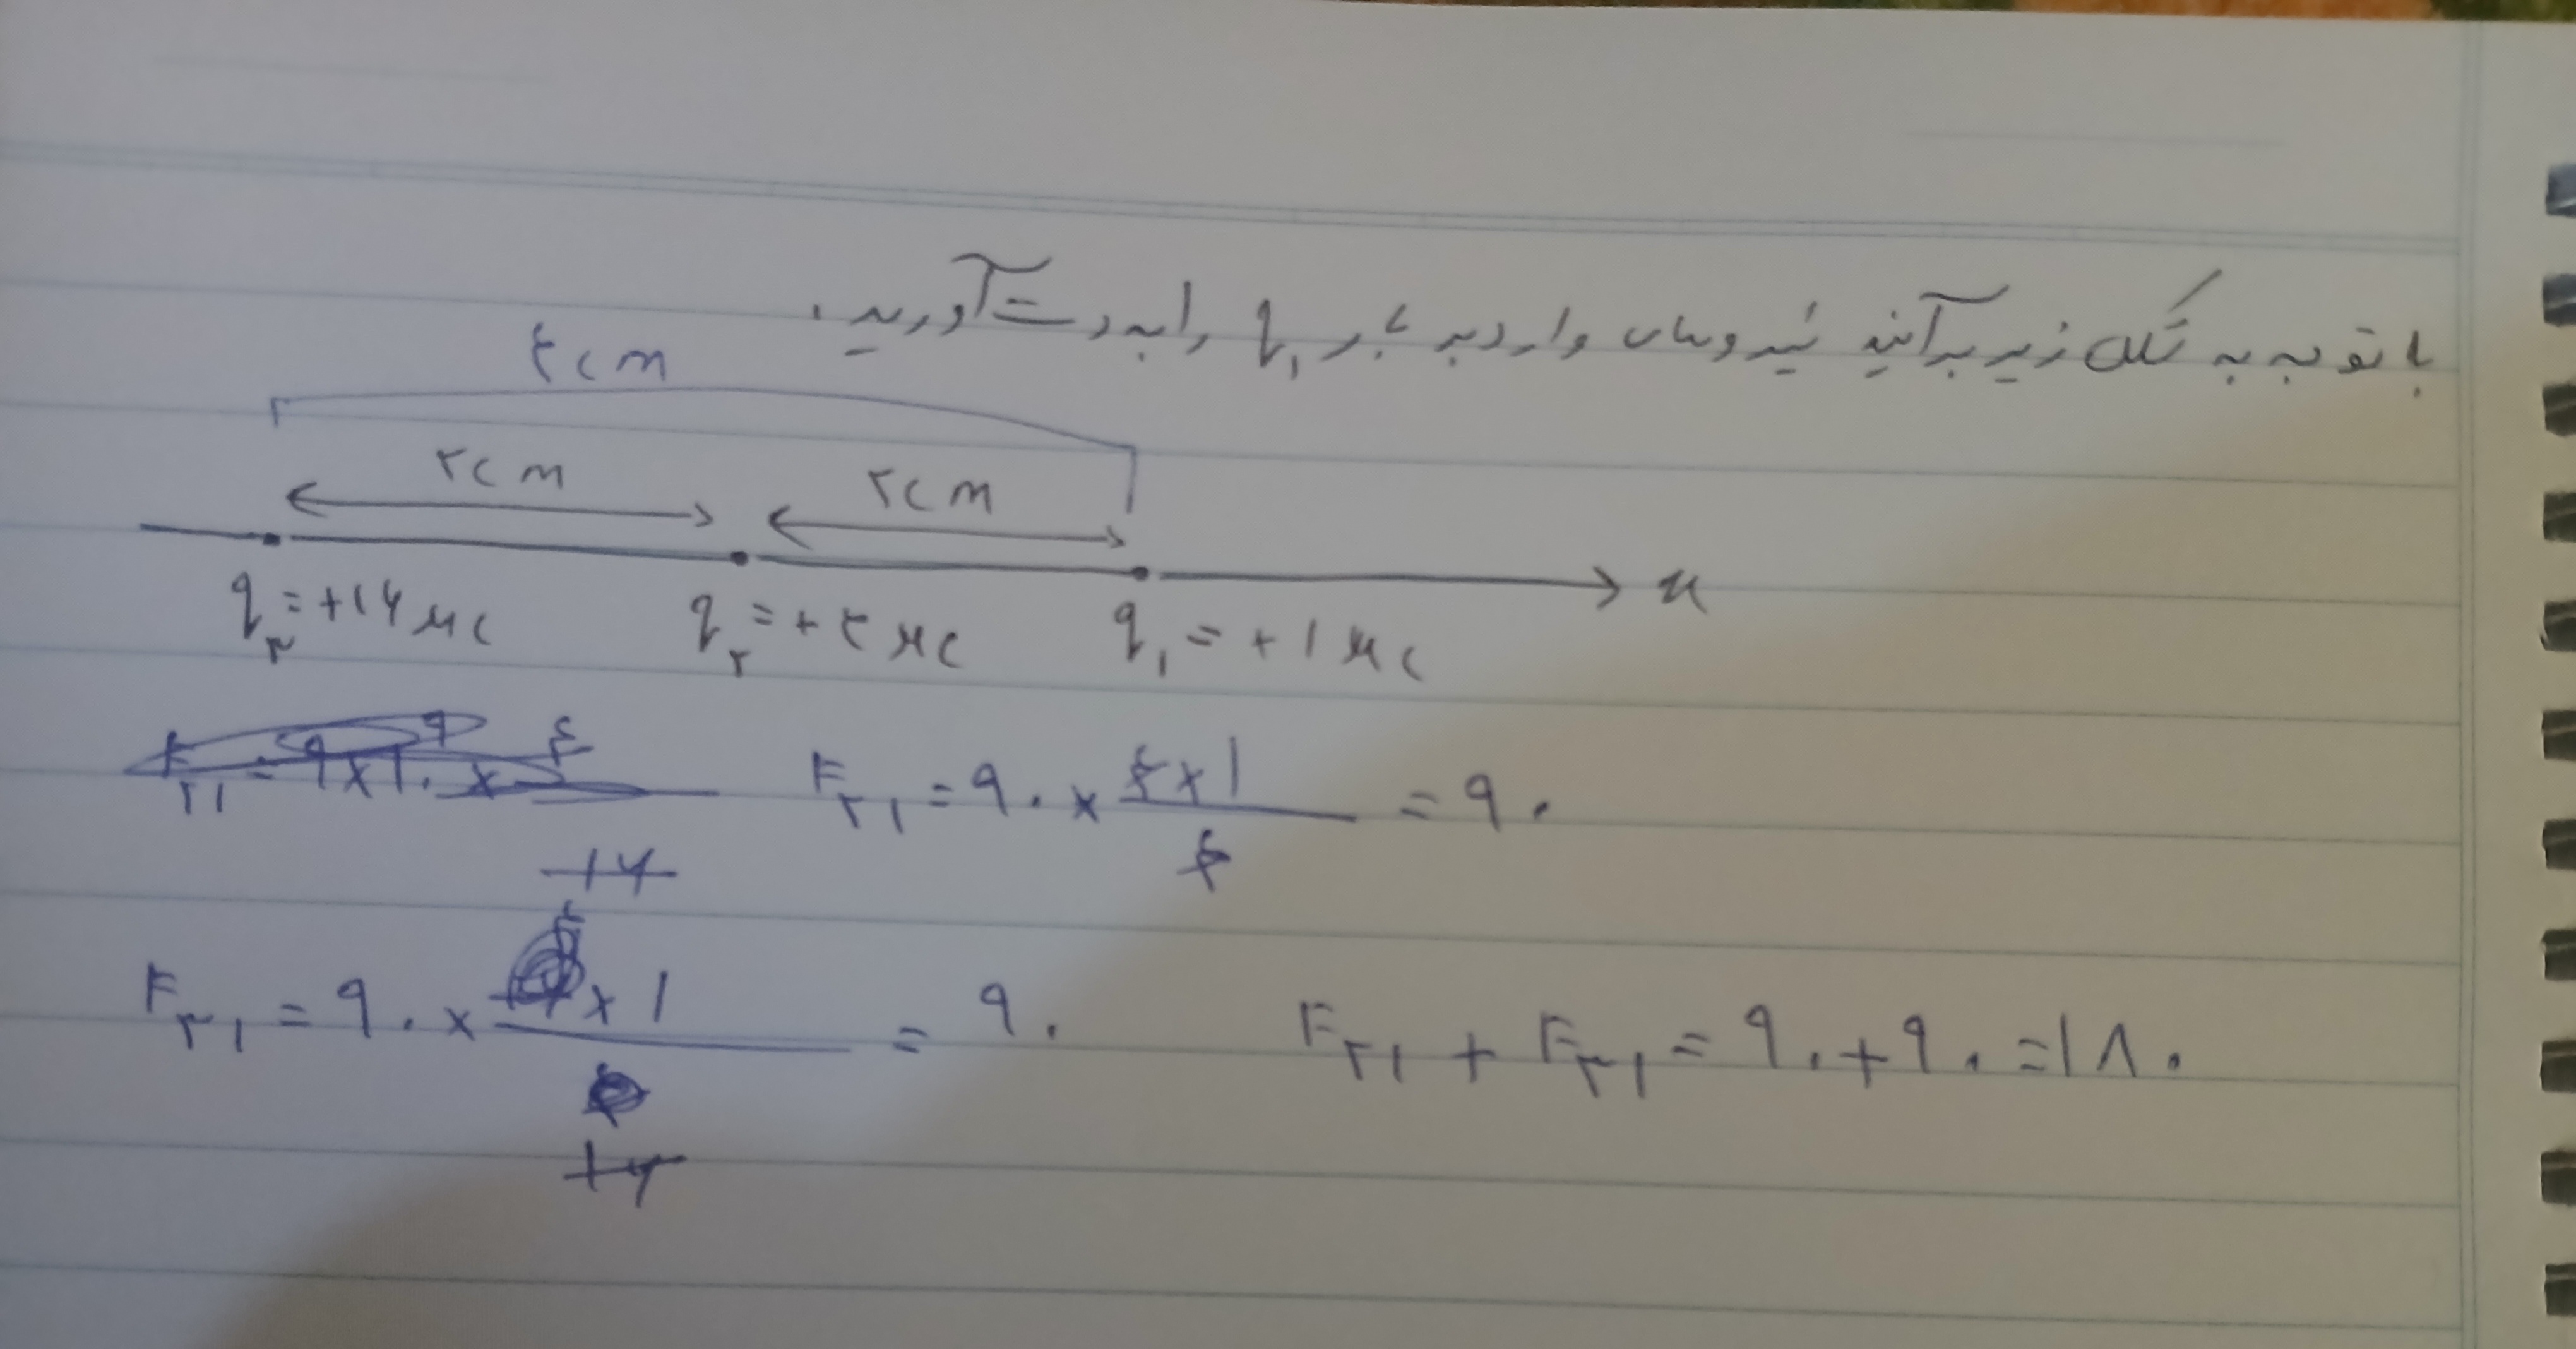 با توجه به شکل زیر برآیند نیروهای وارد بر بار q₁ را به دست آورید.
۴cm
۲cm ۲cm
q₃ = +۱۶ μc q₂ = +۴ μc q₁ = +۱ μc x
F₂₁ = ۹۰ × ۴×۱ / ۴ = ۹۰
F₃₁ = ۹۰ × ۱۶ × ۱ / ۱۶ = ۹۰ F₂₁ + F₃₁ = ۹۰ + ۹۰ = ۱۸۰